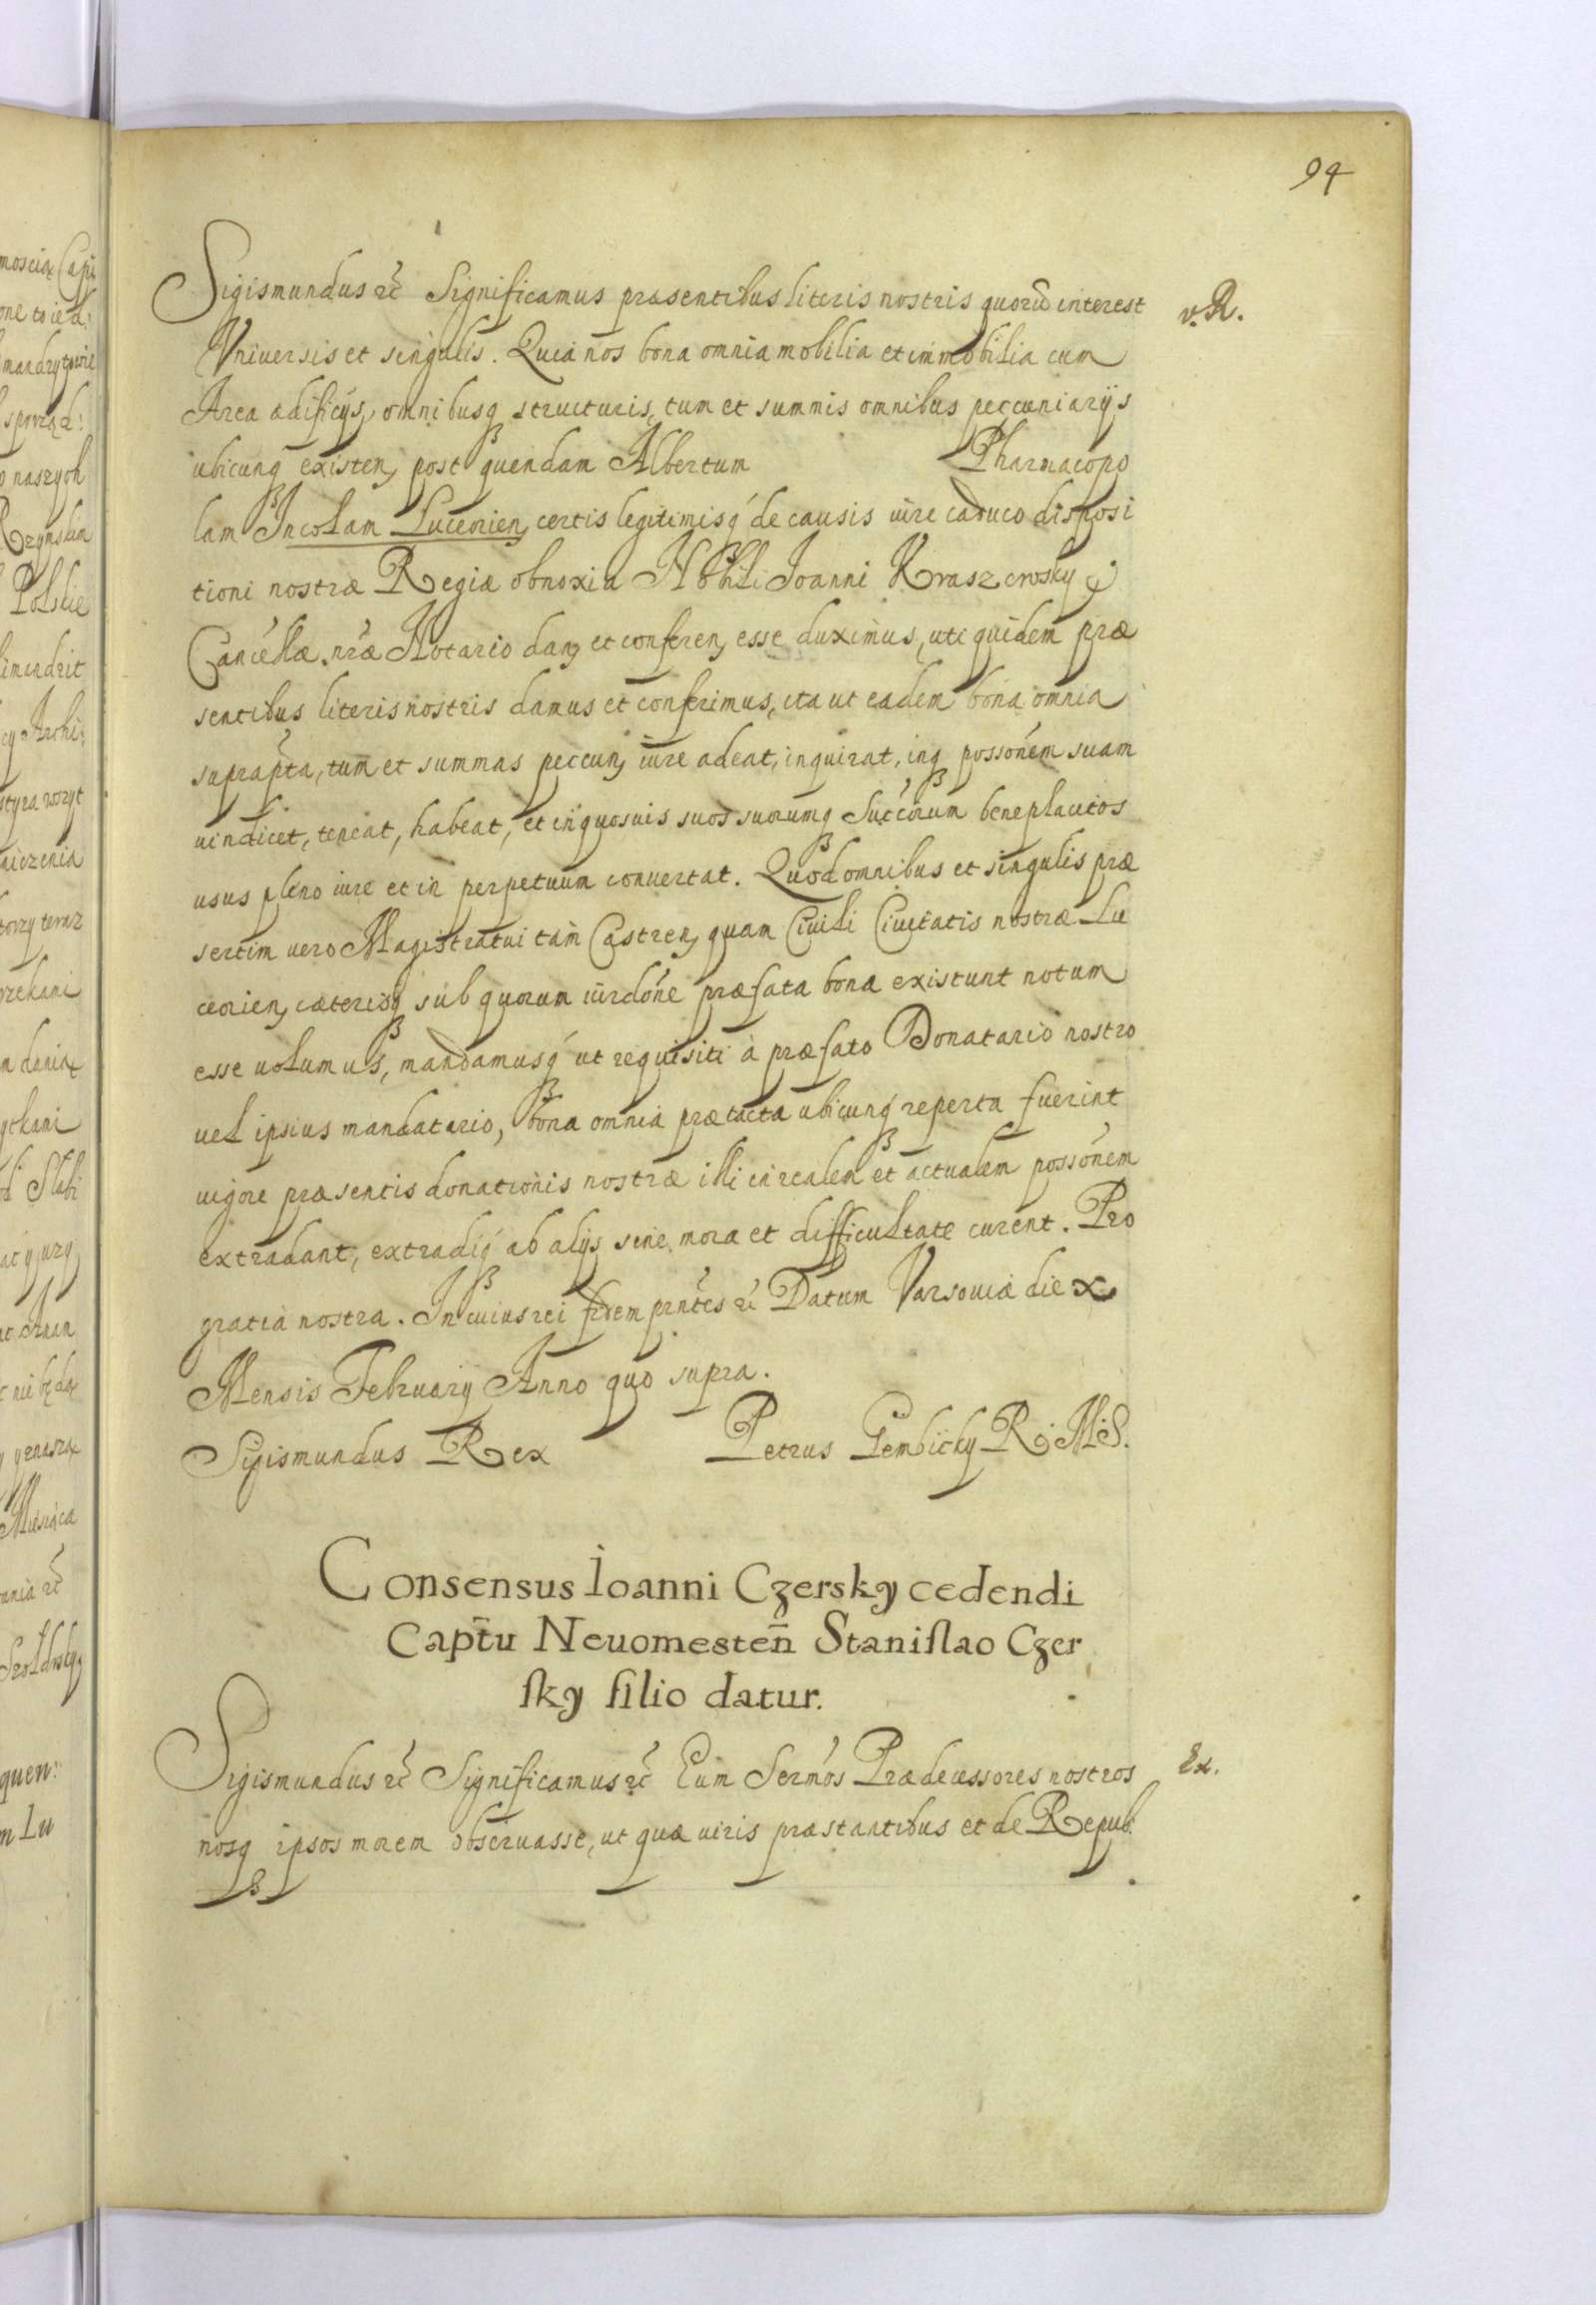 94
Sigismundus ꝛc̃ Significamus præsentibus literis nostris quorũ interest
v. R.
Vniuersis et singulis. Quia nos bona omnia mobilia et immobilia cum
Area ædificijs, omnibusq₃ structuris, tum et summis omnibus peccuniarijs
ubicunq₃ existen, post quendam Albertum Pharmacopo
lam Incolam Luceorien, certis legitimisq́ de causis iure caduco disposi
tioni nostræ Regiæ obnoxia Nobili Joanni Kraszewsky
Cancellæ nr̃æ Notario dan, et conferen, esse duximus, uti quidem præ
sentibus literis nostris damus et conferimus, ita ut eadem bona omnia
suprapta, tum et summas peccun, iure adeat, inquirat, inq₃ possonem suam
uindicet, teneat, habeat, et in quosuis suos suorumq₃ Succorum beneplacitos
usus pleno iure et in perpetuum conuertat. Quod omnibus et singulis præ
sertim uero Magistratui tam Castren, quam Ciuili Ciuitatis nostræ Lu
ceorien, cæterisq₃ sub quorum iurdone præfata bona existunt notum
esse uolumus, mandamusq́ ut requisiti à præfato Donatario nostro
uel ipsius mandatario, bona omnia prætacta ubicunq́ reperta fuerint
uigore præsentis donationis nostræ illi in realem et actualem possonem
extradant, extradiq́ ab alijs sine mora et difficultate curent. Pro
gratia nostra. In cuius rei fidem pntes ꝛc̃ Datum Varsouiæ die X
Mensis February Anno quo supra.
Sigismundus Rex Petrus Gembicky R. M. S.
Consensus Ioanni Czersky cedendi
Captu Neuomesten̄ Stanislao Czer
sky filio datur.
Sigismundus ꝛc̃ Significamus ꝛc̃ Eum Sermos Prædecessores nostros
Ex.
nosq₃ ipsos morem obseruasse, ut quæ uiris præstantibus et de Repub: